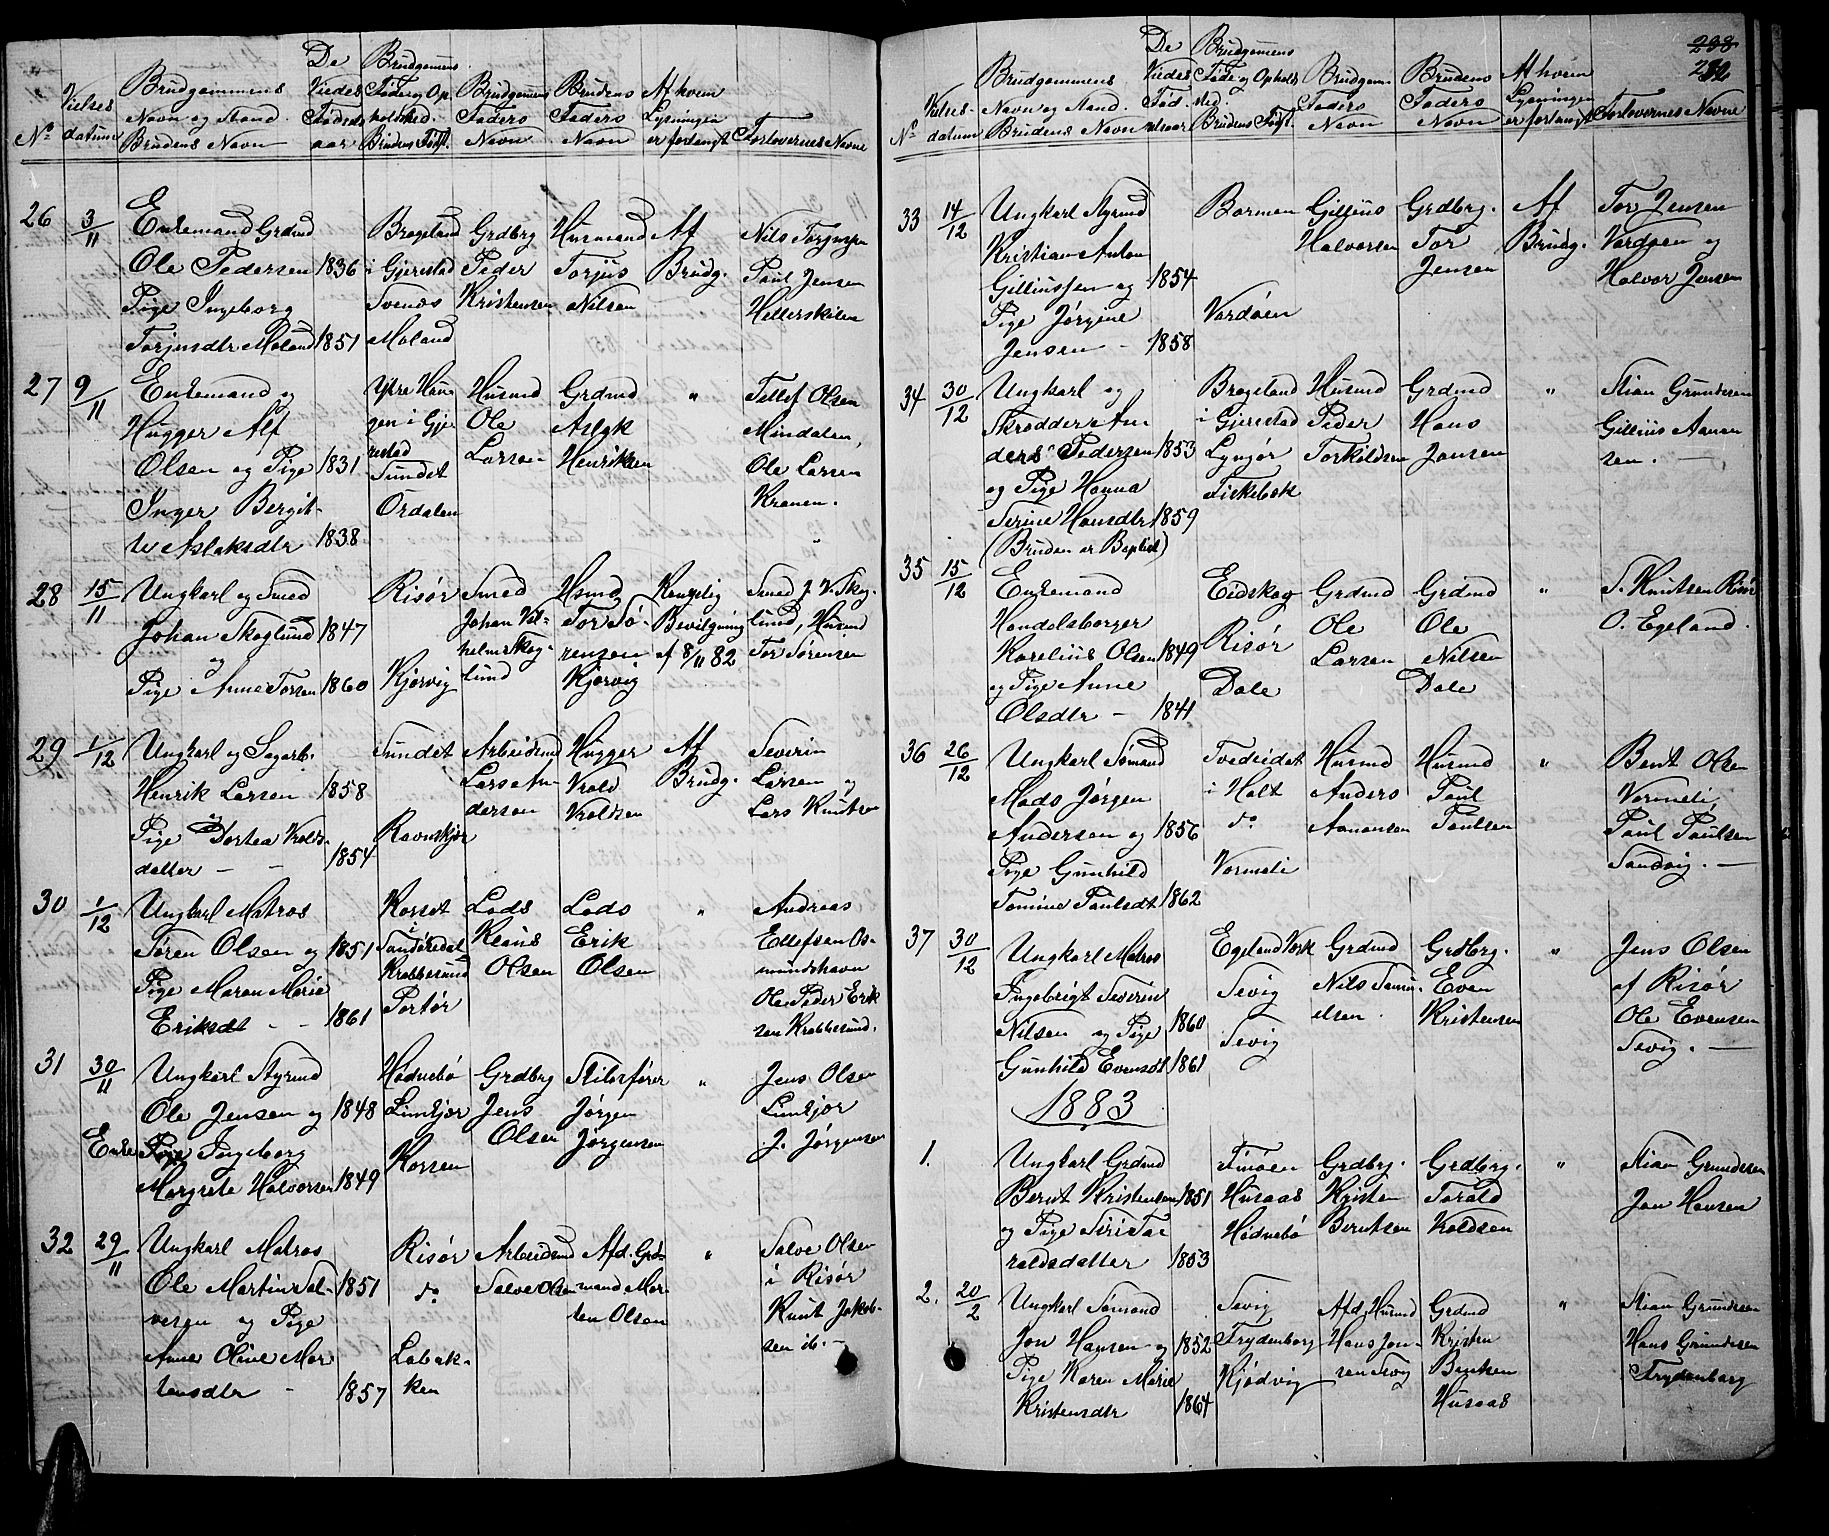 238
232
No
Vielses datum
Brudgommens Navn og Stand. Brudens Navn
De Viedes Fødselsaar
Brudgommens Føde og Opholdssted. Brudens Føst.
Brudgommens Faders Navn
Brudens Faders Navn
Af hvem Lysningen er forlangt
Forlovernes Navne
26 3/11
Enkemand Grdmd
Ole Pedersen 1836
Pige Ingeborg
Torjusdtr Moland 1851
Brogeland
i Gjerestad
Svenæs
Moland
Grdbrg
Peder
Kristensen
Husmand
Torjus
Nilsen
Af
Brudg.
Nils Torjusen
Paul Jensen
Hellerskilen
27 9/11
Enkemand og
Hugger Alf
Olsen og Pige 1831
Inger Bergit-
te Aslaksdtr 1838
Ytre Hau-
gen i Gje
restad
Sundet
Ørdalen
Husmd
Ole
Larsen
Grdmd
Aslak
Henriksen
"
Tellef Olsen
Mindalen,
Ole Larsen
Kranen.
28 15/11
Ungkarl og Smed
Johan Skoglund 1847
og
Pige Anne Torsen 1860
Risør
Kjørvig
Smed
Johan Vil-
helm Skog-
lund
Hsmd
Tor Sø-
rensen
Kjørvig
Kongelig
Bevilgning
af 8/11 82
Smed J. V. Skog-
lund, Husmd
Tor Sørensen
29 1/12
Ungkarl og Sagarb.
Henrik Larsen 1858
og
Pige Dortea Vrolds-
datter - - 1854
Sundet
Ravnskjær
Arbeidsmd
Lars An-
dersen
Hugger
Vrold
Vroldsen
Af
Brudg.
Severin
Larsen og
Lars Knutsen
30 1/12
Ungkarl Matros
Søren Olsen og 1851
Pige Maren Marie
Eriksdt - - 1861
Kosset
i
Sandøkedal
Krabbesund
Portør
Lods
Klaus
Olsen
Lods
Erik
Olsen
"
Andreas
Ellefsen Os-
mundshavn
Ole Peder Erik
sen Krabbesund.
31 30/11
Ungkarl Styrmd
Ole Jensen og 1848
Enke Pige Ingeborg
Margrete Halvorsen 1849
Hødnebø
Limkjær
Korsen
Grdbrg
Jens
Olsen
Skibsfører
Jørgen
Jørgensen
"
Jens Olsen
Limkjær
J. Jørgensen
32 29/11
Ungkarl Matros
Ole Martin Sal- 1851
vesen og Pige
Anne Oline Mor
tensdtr - 1857
Risør
do
Labak-
ken
Arbeidsmd
Salve Olsen
Afd. Grd-
mand Mor-
ten Olsen
"
Salve Olsen
i Risør
Knut Jakob-
sen ib. -
No
Vielses-datum
Brudgommens Navn og Stand. Brudens Navn
De Viedes Fødselsaar
Brudgommens Føde og Opholdssted. Brudens Føst.
Brudgom. Faders Navn
Brudens Faders Navn
Af hvem Lysningen er forlangt
Forlovernes Navne
33 14/12
Ungkarl Styrmd
Kristian Anton
Gilliussen og 1854
Pige Jørgine
Jensen - 1858
Bormen
Vardøen
Gillius
Halvorsen
Grdbrg.
Tor
Jensen
Af
Brudg.
Tor Jensen
Vardøen og
Halvor Jensen
34 30/12
Ungkarl og
Skrædder An
ders Pedersen 1853
og Pige Hanna
Serine Hansdtr 1859
(Bruden er Baptist)
Brogeland
i Gjerestad
Lyngør
Fiskebæk
Husmd
Peder
Torkildsen
Grdmd
Hans
Jansen
"
Stian Grundesen
Gillius Aanon
sen. -
35 15/12
Enkemand
Handelsborger
Karelius Olsen 1849
og Pige Anne
Olsdtr - 1841
Eidskog
Risør
Dale
Grdmd
Ole
Larsen
Grdmd
Ole
Nilsen
Dale
"
S. Knutsen Risør
O. Egeland.
36 26/12
Ungkarl Sømand
Mads Jørgen
Andersen og 1856
Pige Gunhild
Tomine Paulsdt 1862
Tvedeidet
i Holt
do
Vormeli
Husmd
Anders
Aanonsen
Husmd
Paul
Paulsen
"
Bent Olsen
Vormeli,
Paul Paulsen
Sandvig. -
37 30/12
Ungkarl Matros
Ingebrigt Severin
Nilsen og Pige 1860
Gunhild Evensdt 1861
Egeland Værk
Sevig
Sevig
Grdmd
Nils Samu-
elsen.
Grdbrg.
Even
Kristensen
"
Jens Olsen
af Risør
Ole Evensen
Sevig. -
1883
1.
Ungkarl Grdmd
Bernt Kristensen 1851
og Pige Siri Ta
raldsdatter 1853
Finøen
Husaas
Hødnebø
Grdbrg.
Kristen
Berntsen
Grdbrg.
Torald
Vroldsen
"
Stian Grundesen
Jan Hansen
2. 20/2
Ungkarl Sømand
Jon Hansen og 1852
Pige Karen Marie
Kristensdtr 1864
Sevig
Frydenborg
Kjødvig
Afd. Husmd
Hans Jon-
sen Sevig
Grdmd
Kristen
Bentsen
Husaas
"
Stian Grundesen
Hans Grundesen
Frydenborg